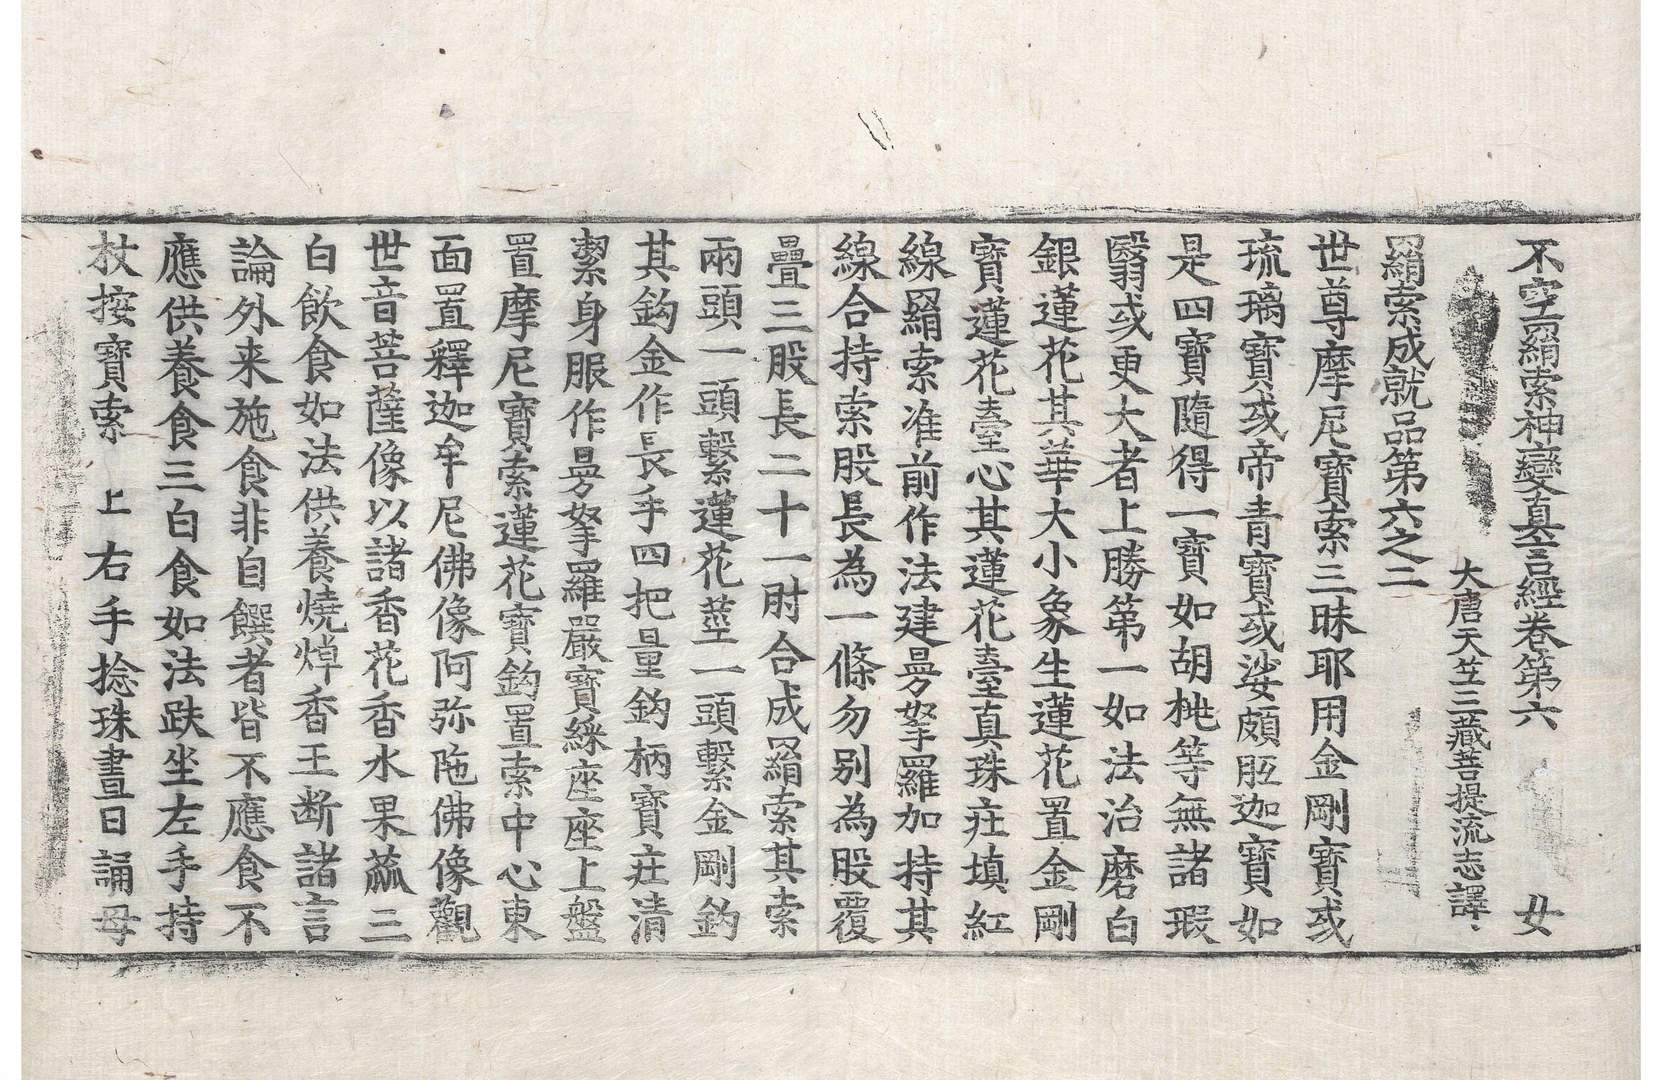 不空羂索神變真言經卷第六　女
大唐天竺三藏菩提流志譯
羂索成就品第六之二
世尊摩尼寶索三昧耶用金剛寶或
琉璃寶或帝青寶或娑頗胝迦寶如
是四寶隨得一寶如胡桃等無諸瑕
翳或更大者上勝第一如法治磨白
銀蓮花其華大小象生蓮花置金剛
寶蓮花臺心其蓮花臺真珠莊填紅
線羂索准前作法建曼拏羅加持其
線合持索股長為一條勿別為股覆
疊三股長二十一肘合成羂索其索
兩頭一頭繫蓮花莖一頭繫金剛鈎
其鈎金作長手四把量鈎柄寶莊清
潔身服作曼拏羅嚴寶綵座座上盤
置摩尼寶索蓮花寶鈎置索中心東
面置釋迦牟尼佛像阿弥陁佛像觀
世音菩薩像以諸香花香水果蓏三
白飲食如法供養燒焯香王断諸言
論外来施食非自饌者皆不應食不
應供養食三白食如法趺坐左手持
杖按寶索上右手捻珠晝日誦母